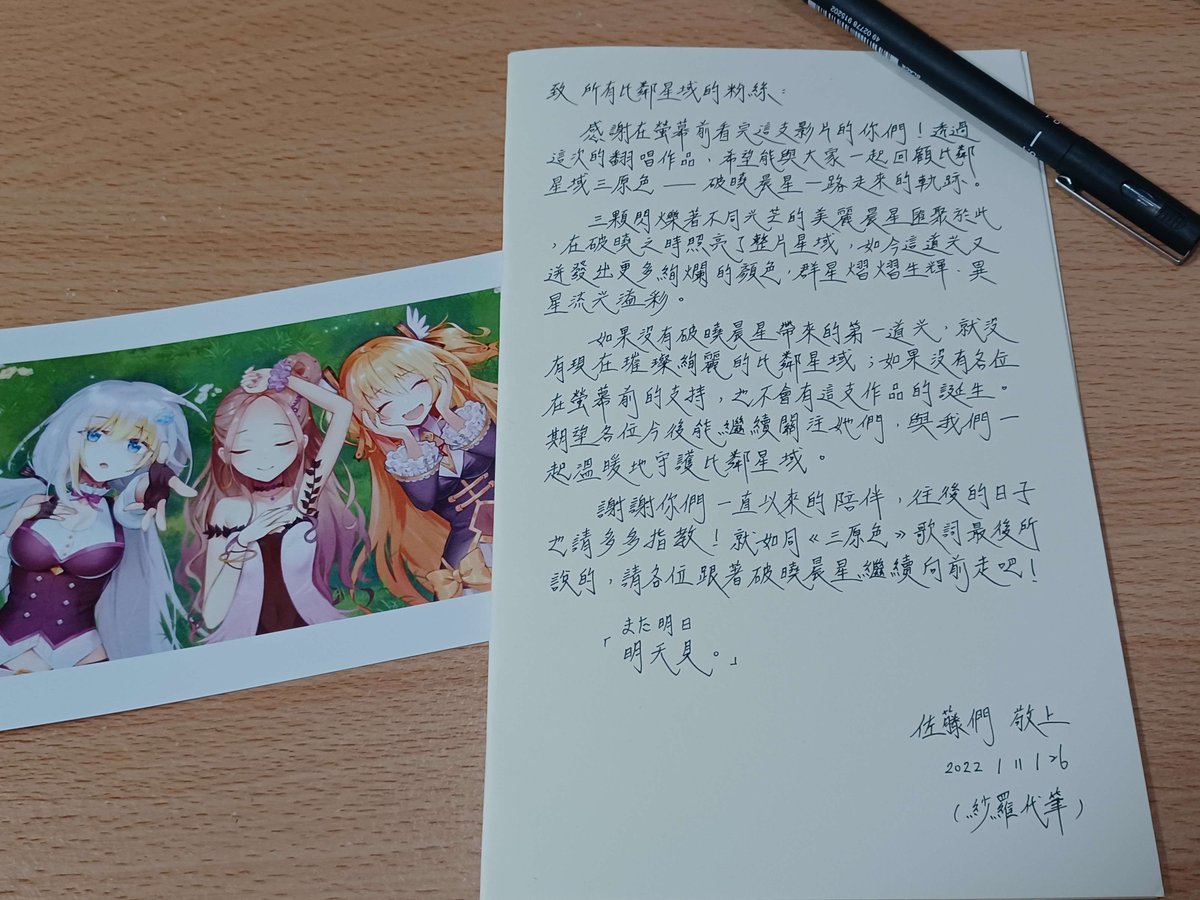 致 所有比鄰星域的粉絲：
感謝在螢幕前看完這支影片的你們！透過
這次的翻唱作品，希望能與大家一起回顧比鄰
星域三原色——破曉晨星一路走來的軌跡。
三顆閃爍著不同光芒的美麗晨星匯聚於此
，在破曉之時照亮了整片星域，如今這道光又
迸發出更多絢爛的顏色，群星熠熠生輝、異
星流光溢彩。
如果沒有破曉晨星帶來的第一道光，就沒
有現在璀璨絢麗的比鄰星域；如果沒有各位
在螢幕前的支持，也不會有這支作品的誕生。
期望各位今後能繼續關注她們，與我們一
起溫暖地守護比鄰星域。
謝謝你們一直以來的陪伴，往後的日子
也請多多指教！就如同《三原色》歌詞最後所
說的，請各位跟著破曉晨星繼續向前走吧！
また明日
「明天見。」
佐藤們 敬上
2022/11/26
（紗羅代筆）
49 02778 915202